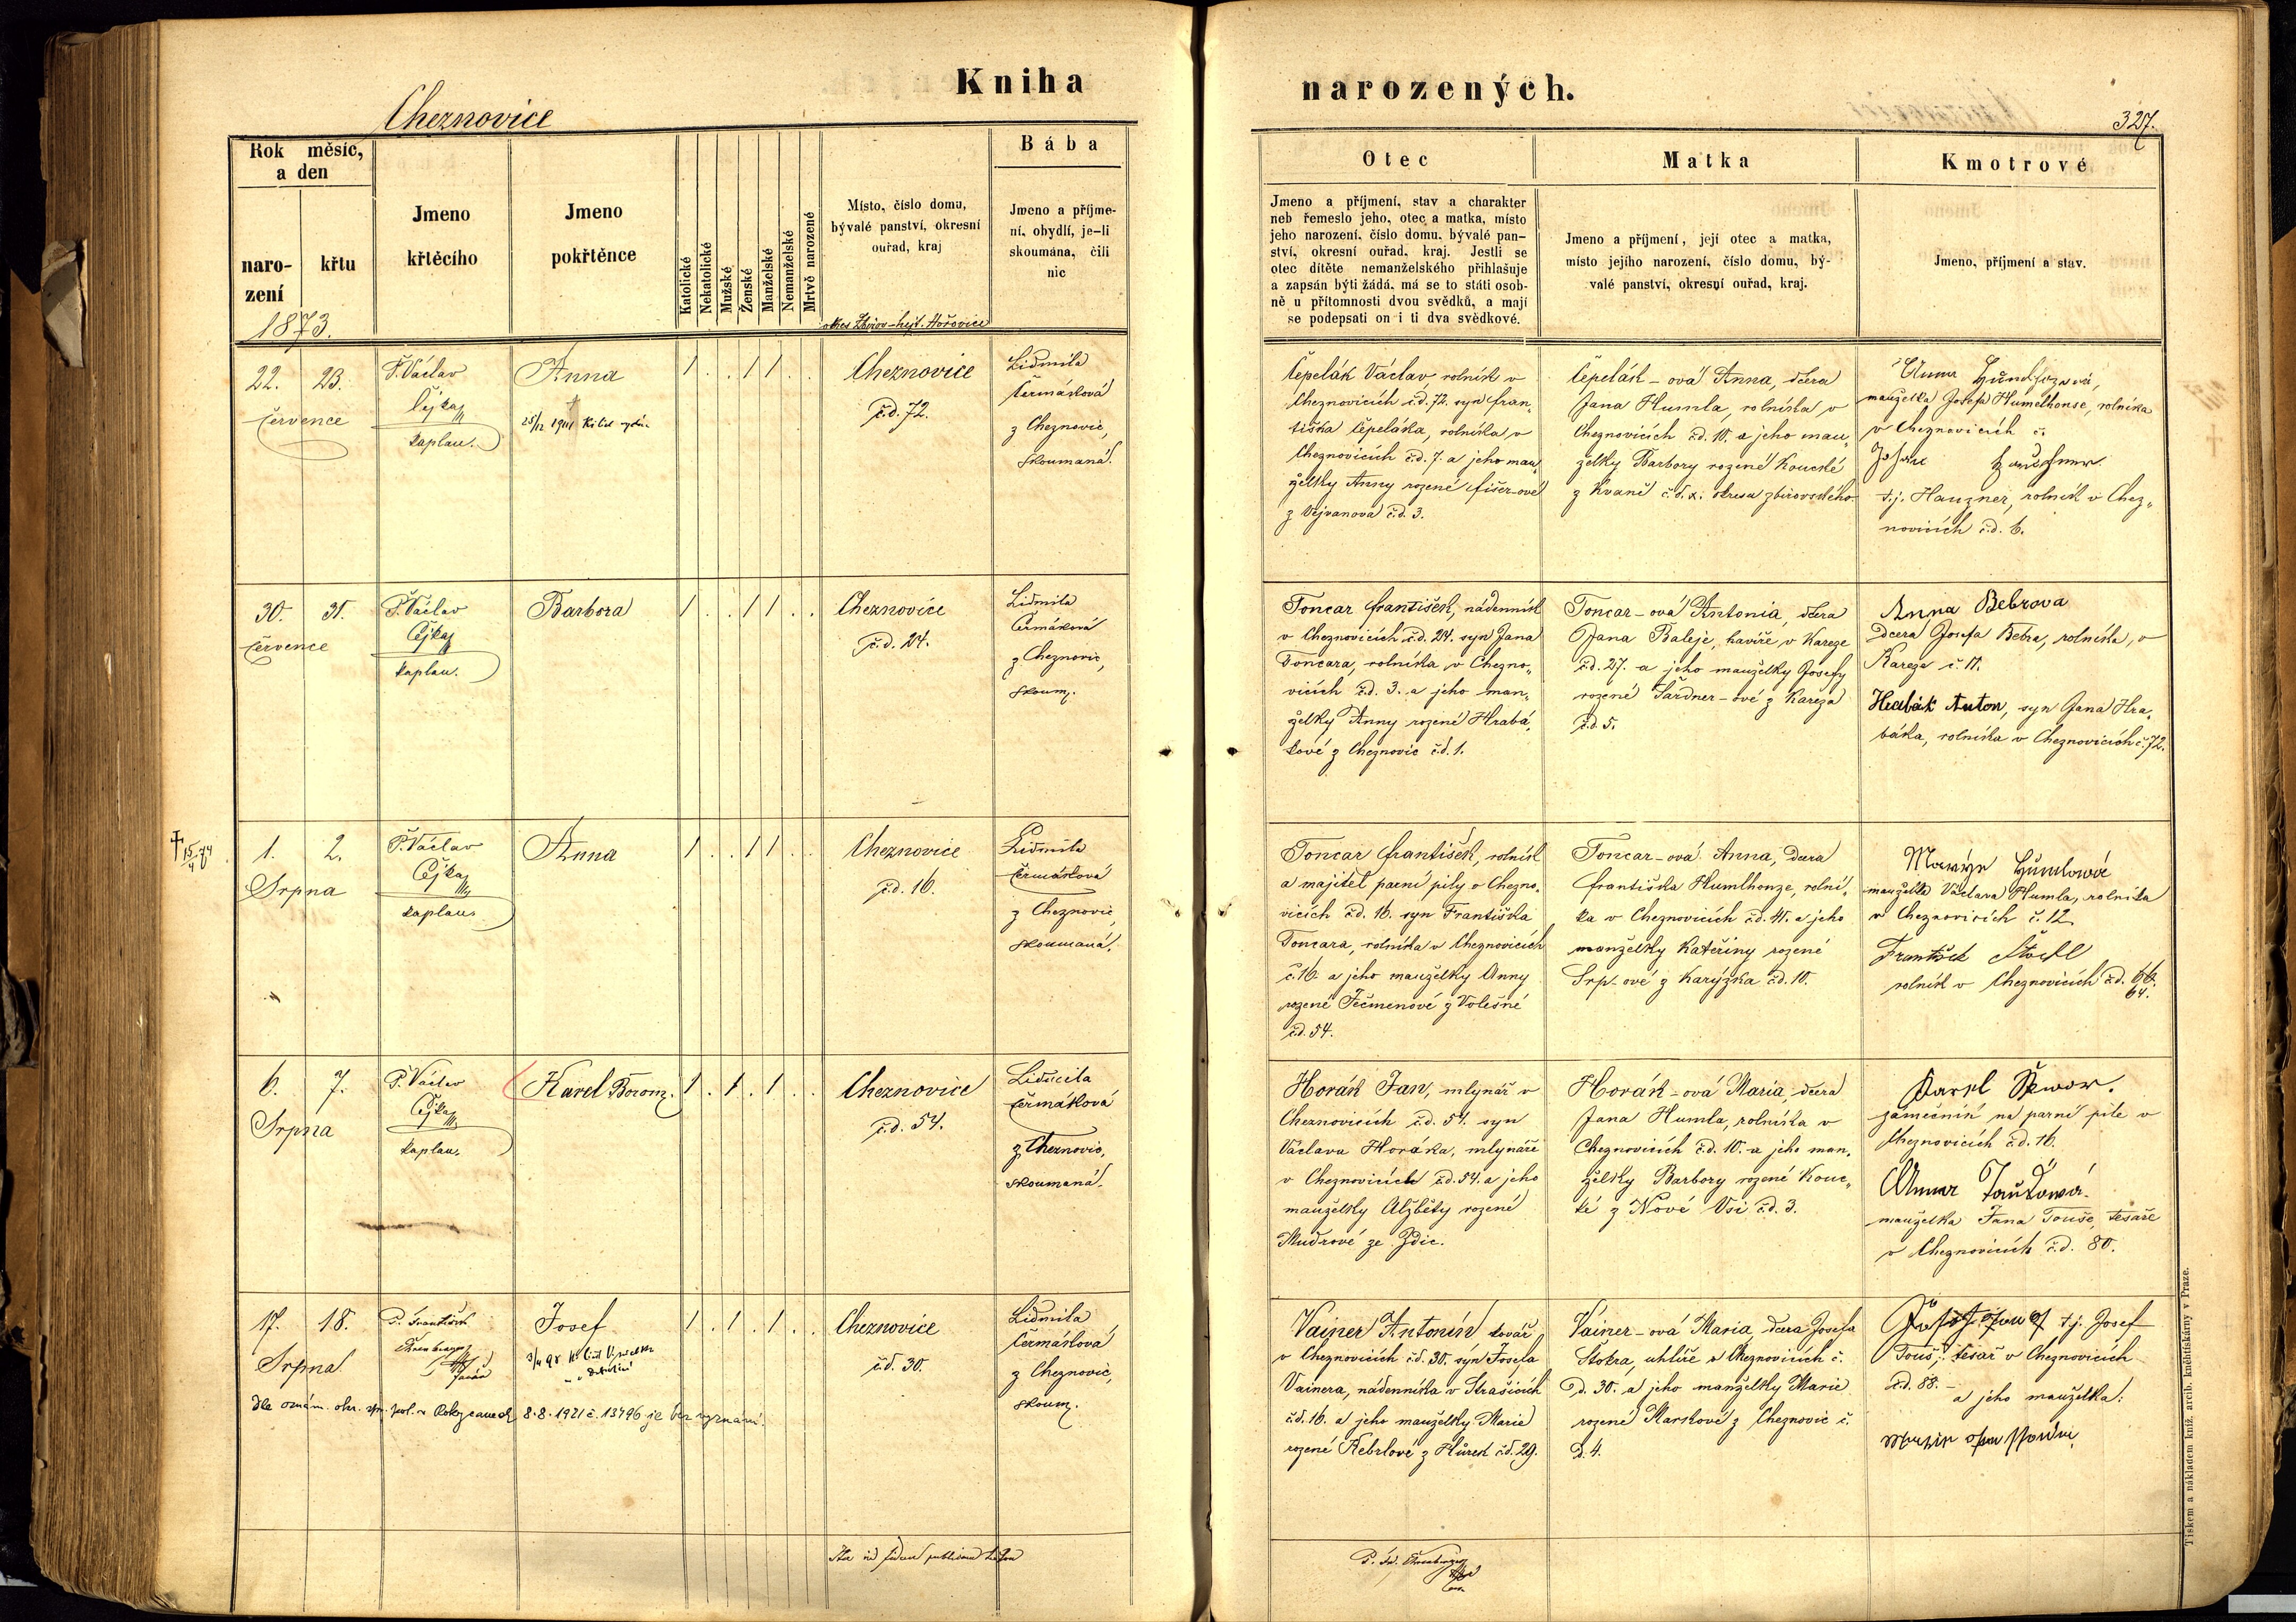 Kniha
narozených.
Cheznovice
327.
Rok měsíc,
a den
naro-
zení
křtu
Jmeno
křtěcího
Jmeno
pokřtěnce
Katolické
Nekatolické
Mužské
Ženské
Manželské
Nemanželské
Mrtvě narozené
Místo, číslo domu,
bývalé panství, okresní
ouřad, kraj
Bába
Jmeno a příjme-
ní, obydlí, je-li
skoumána, čili
nic
1873.
okres Zbirov - hejt. Hořovice
Otec
Jmeno a příjmení, stav a charakter
neb řemeslo jeho, otec a matka, místo
jeho narození, číslo domu, bývalé pan-
ství, okresní ouřad, kraj. Jestli se
otec dítěte nemanželského přihlašuje
a zapsán býti žádá, má se to státi osob-
ně u přítomnosti dvou svědků, a mají
se podepsati on i ti dva svědkové.
Matka
Jmeno a příjmení, její otec a matka,
místo jejího narození, číslo domu, bý-
valé panství, okresní ouřad, kraj.
Kmotrové
Jmeno, příjmení a stav.
22. 23.
července
P. Václav
Čejka
kaplan.
Anna
25/12 1941
1 . . 1 1 . .
Cheznovice
č.d. 72.
Lidmila
Čermáková
z Cheznovic,
skoumaná.
Čepelák Václav, rolník v
Cheznovicích č.d. 72. syn Fran„
tiška Čepeláka, rolníka v
Cheznovicích č.d. 7. a jeho man„
želky Anny rozené Fišer-ové
z Vejvanova č.d. 3.
Čepelák-ová Anna, dcera
Jana Humla, rolníka v
Cheznovicích č.d. 10. a jeho man„
želky Barbory rozené Koucké
z Kvaně č.d. x. okresu zbirovského
Anna
manželka Josefa Humelhonse, rolníka
v Cheznovicích č.
Josef
t.j. Hauzner, rolník v Chez„
novicích č.d. 6.
30. 31.
července
P. Václav
Čejka
kaplan.
Barbora
1 . . 1 1 . .
Cheznovice
č.d. 24.
Lidmila
Čermáková
z Cheznovic,
skoum.
Toncar František, nádenník
v Cheznovicích č.d. 24. syn Jana
Toncara, rolníka v Chezno„
vicích č.d. 3. a jeho man„
želky Anny rozené Hrabá„
kové z Cheznovic č.d. 1.
Toncar-ová Antonia, dcera
Jana Baleje, havíře v Kareze
č.d. 27. a jeho manželky Josefy
rozené Šardner-ové z Kareza
č.d. 5.
Anna Bebrova
dcera Josefa Bebra, rolníka, v
Kareze č. 17.
Hrabák Anton, syn Jana Hra„
báka, rolníka v Cheznovicích č. 72.
† 15/4 74
1. 2.
Srpna
P. Václav
Čejka
kaplan.
Anna
1 . . 1 1 . .
Cheznovice
č.d. 16.
Lidmila
Čermáková
z Cheznovic,
skoumaná.
Toncar František, rolník
a majitel parní pily v Chezno„
vicích č.d. 16. syn Františka
Toncara, rolníka v Cheznovicích
č. 16. a jeho manželky Anny
rozené Ječmenové z Volešné
č.d. 54.
Toncar-ová Anna, dcera
Františka Humlhonze, rolní„
ka v Cheznovicích č.d. 41. a jeho
manželky Kateřiny rozené
Srp-ové z Karýzka č.d. 10.
Humlowá
manželka Václava Humla, rolníka
v Cheznovicích č. 12.
František
rolník v Cheznovicích č.d. 66.
64.
6. 7.
Srpna
P. Václav
Čejka
kaplan.
Karel Borom.
1 . 1 . 1 . .
Cheznovice
č.d. 54.
Lidmila
Čermáková
z Cheznovic,
skoumaná.
Horák Jan, mlynář v
Cheznovicích č.d. 54. syn
Václava Horáka, mlynáře
v Cheznovicích č.d. 54. a jeho
manželky Alžběty rozené
Mudrové ze Zdic.
Horák-ová Maria, dcera
Jana Humla, rolníka v
Cheznovicích č.d. 10. a jeho man„
želky Barbory rozené Kouc„
ké z Nové Vsi č.d. 3.
Karel
zámečník na parní pile v
Cheznovicích č.d. 16.
Anna
manželka Jana Touše, tesaře
v Cheznovicích č.d. 80.
17. 18.
Srpna
P. František
Ehrenberger
farář
Josef
1 . 1 . 1 . .
Cheznovice
č.d. 30.
Lidmila
Čermáková
z Cheznovic,
skoum.
dle oznám. okr. spr. pol. v Rokycanech 8.8.1921 č. 13496 je bez vyznání.
Vainer Antonín kovář
v Cheznovicích č.d. 30. syn Josefa
Vainera, nádenníka v Strašicích
č.d. 16. a jeho manželky Marie
rozené Kebrlové z Hůrek č.d. 29.
Vainer-ová Maria, dcera Josefa
Štokra, uhlíře v Cheznovicích č.
d. 30. a jeho manželky Marie
rozené Markové z Cheznovic č.
d. 4.
t.j. Josef
Touš, tesař v Cheznovicích
č.d. 88. -
a jeho manželka:
Ita ad fidem publicam
P. Fr. Ehrenberger
Tiskem a nákladem kníž. arcib. knihtiskárny v Praze.